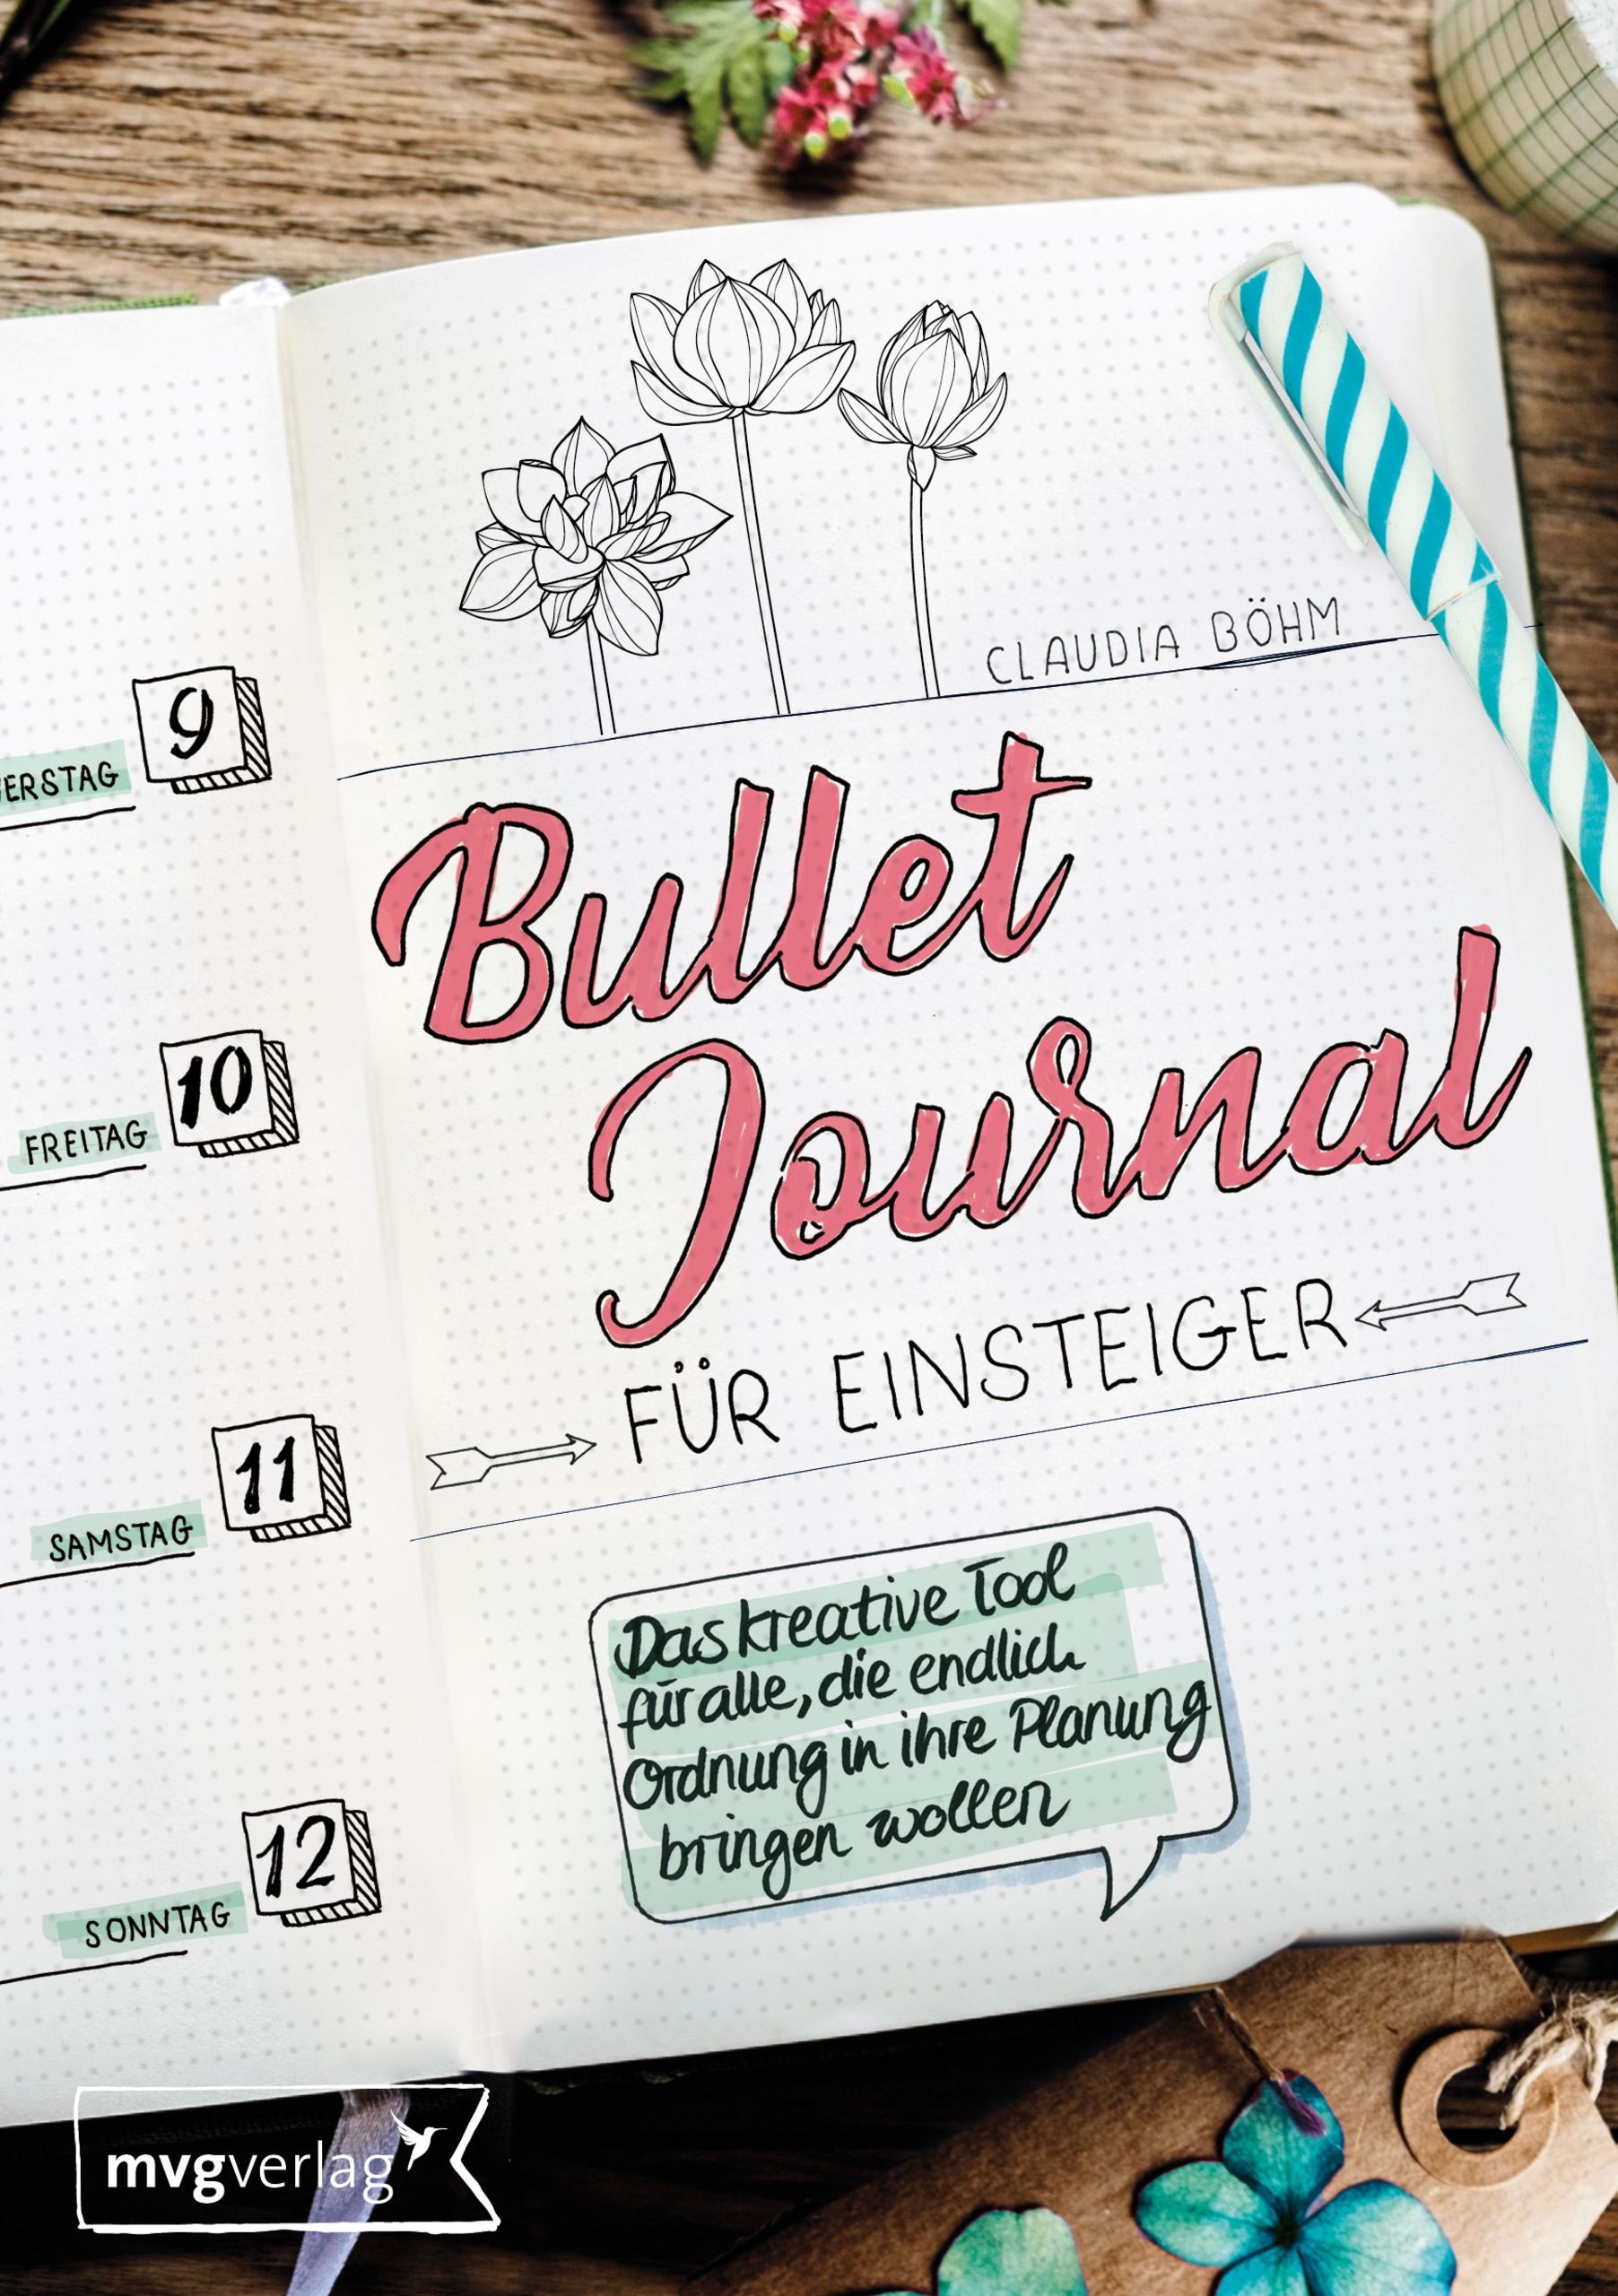 CLAUDIA BÖHM
Bullet
Journal
FÜR EINSTEIGER
Das kreative Tool
für alle, die endlich
Ordnung in ihre Planung
bringen wollen
9
ERSTAG
10
FREITAG
11
SAMSTAG
12
SONNTAG
mvgverlag